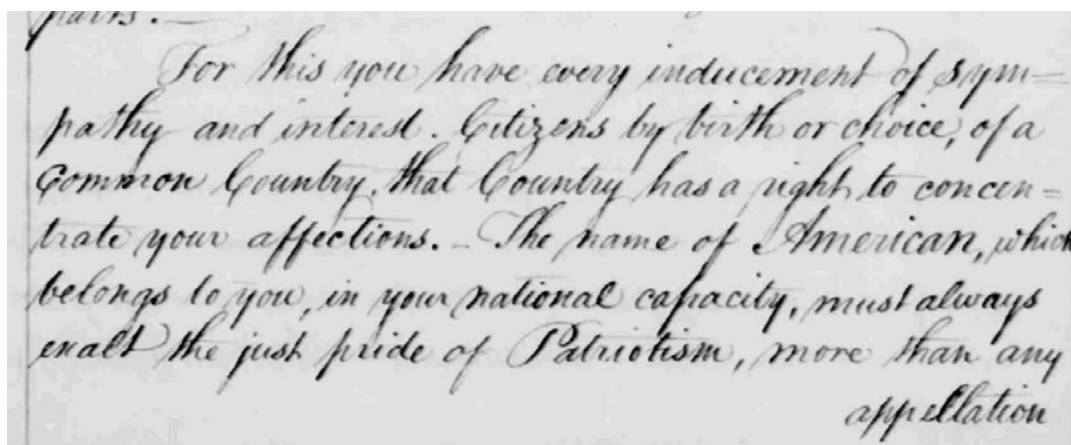 parts. —
For this you have every inducement of sym=
pathy and interest. Citizens by birth or choice, of a
common Country, that Country has a right to concen=
trate your affections. – The name of American, which
belongs to you, in your national capacity, must always
exalt the just pride of Patriotism, more than any
appellation